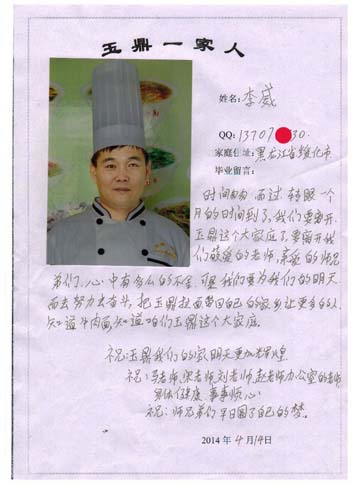 玉鼎一家人
姓名：李威
QQ：13707 30.
家庭住址：黑龙江省绥化市
毕业留言：
时间匆匆而过，转眼一个
月的时间到了，我们要离开
玉鼎这个大家庭了，要离开我
们敬爱的老师，亲爱的师兄
弟们，心中有多么的不舍，可是我们要为我们的明天
而去努力去奋斗，把玉鼎拉面带回自己的家乡让更多的人
知道牛肉面，知道咱们玉鼎这个大家庭。
祝：玉鼎我们的家明天更加辉煌
祝：马老师，宋老师，刘老师，赵老师，办公室的老师
身体健康，事事顺心
祝：师兄弟们早日圆了自己的梦。
2014年4月14日